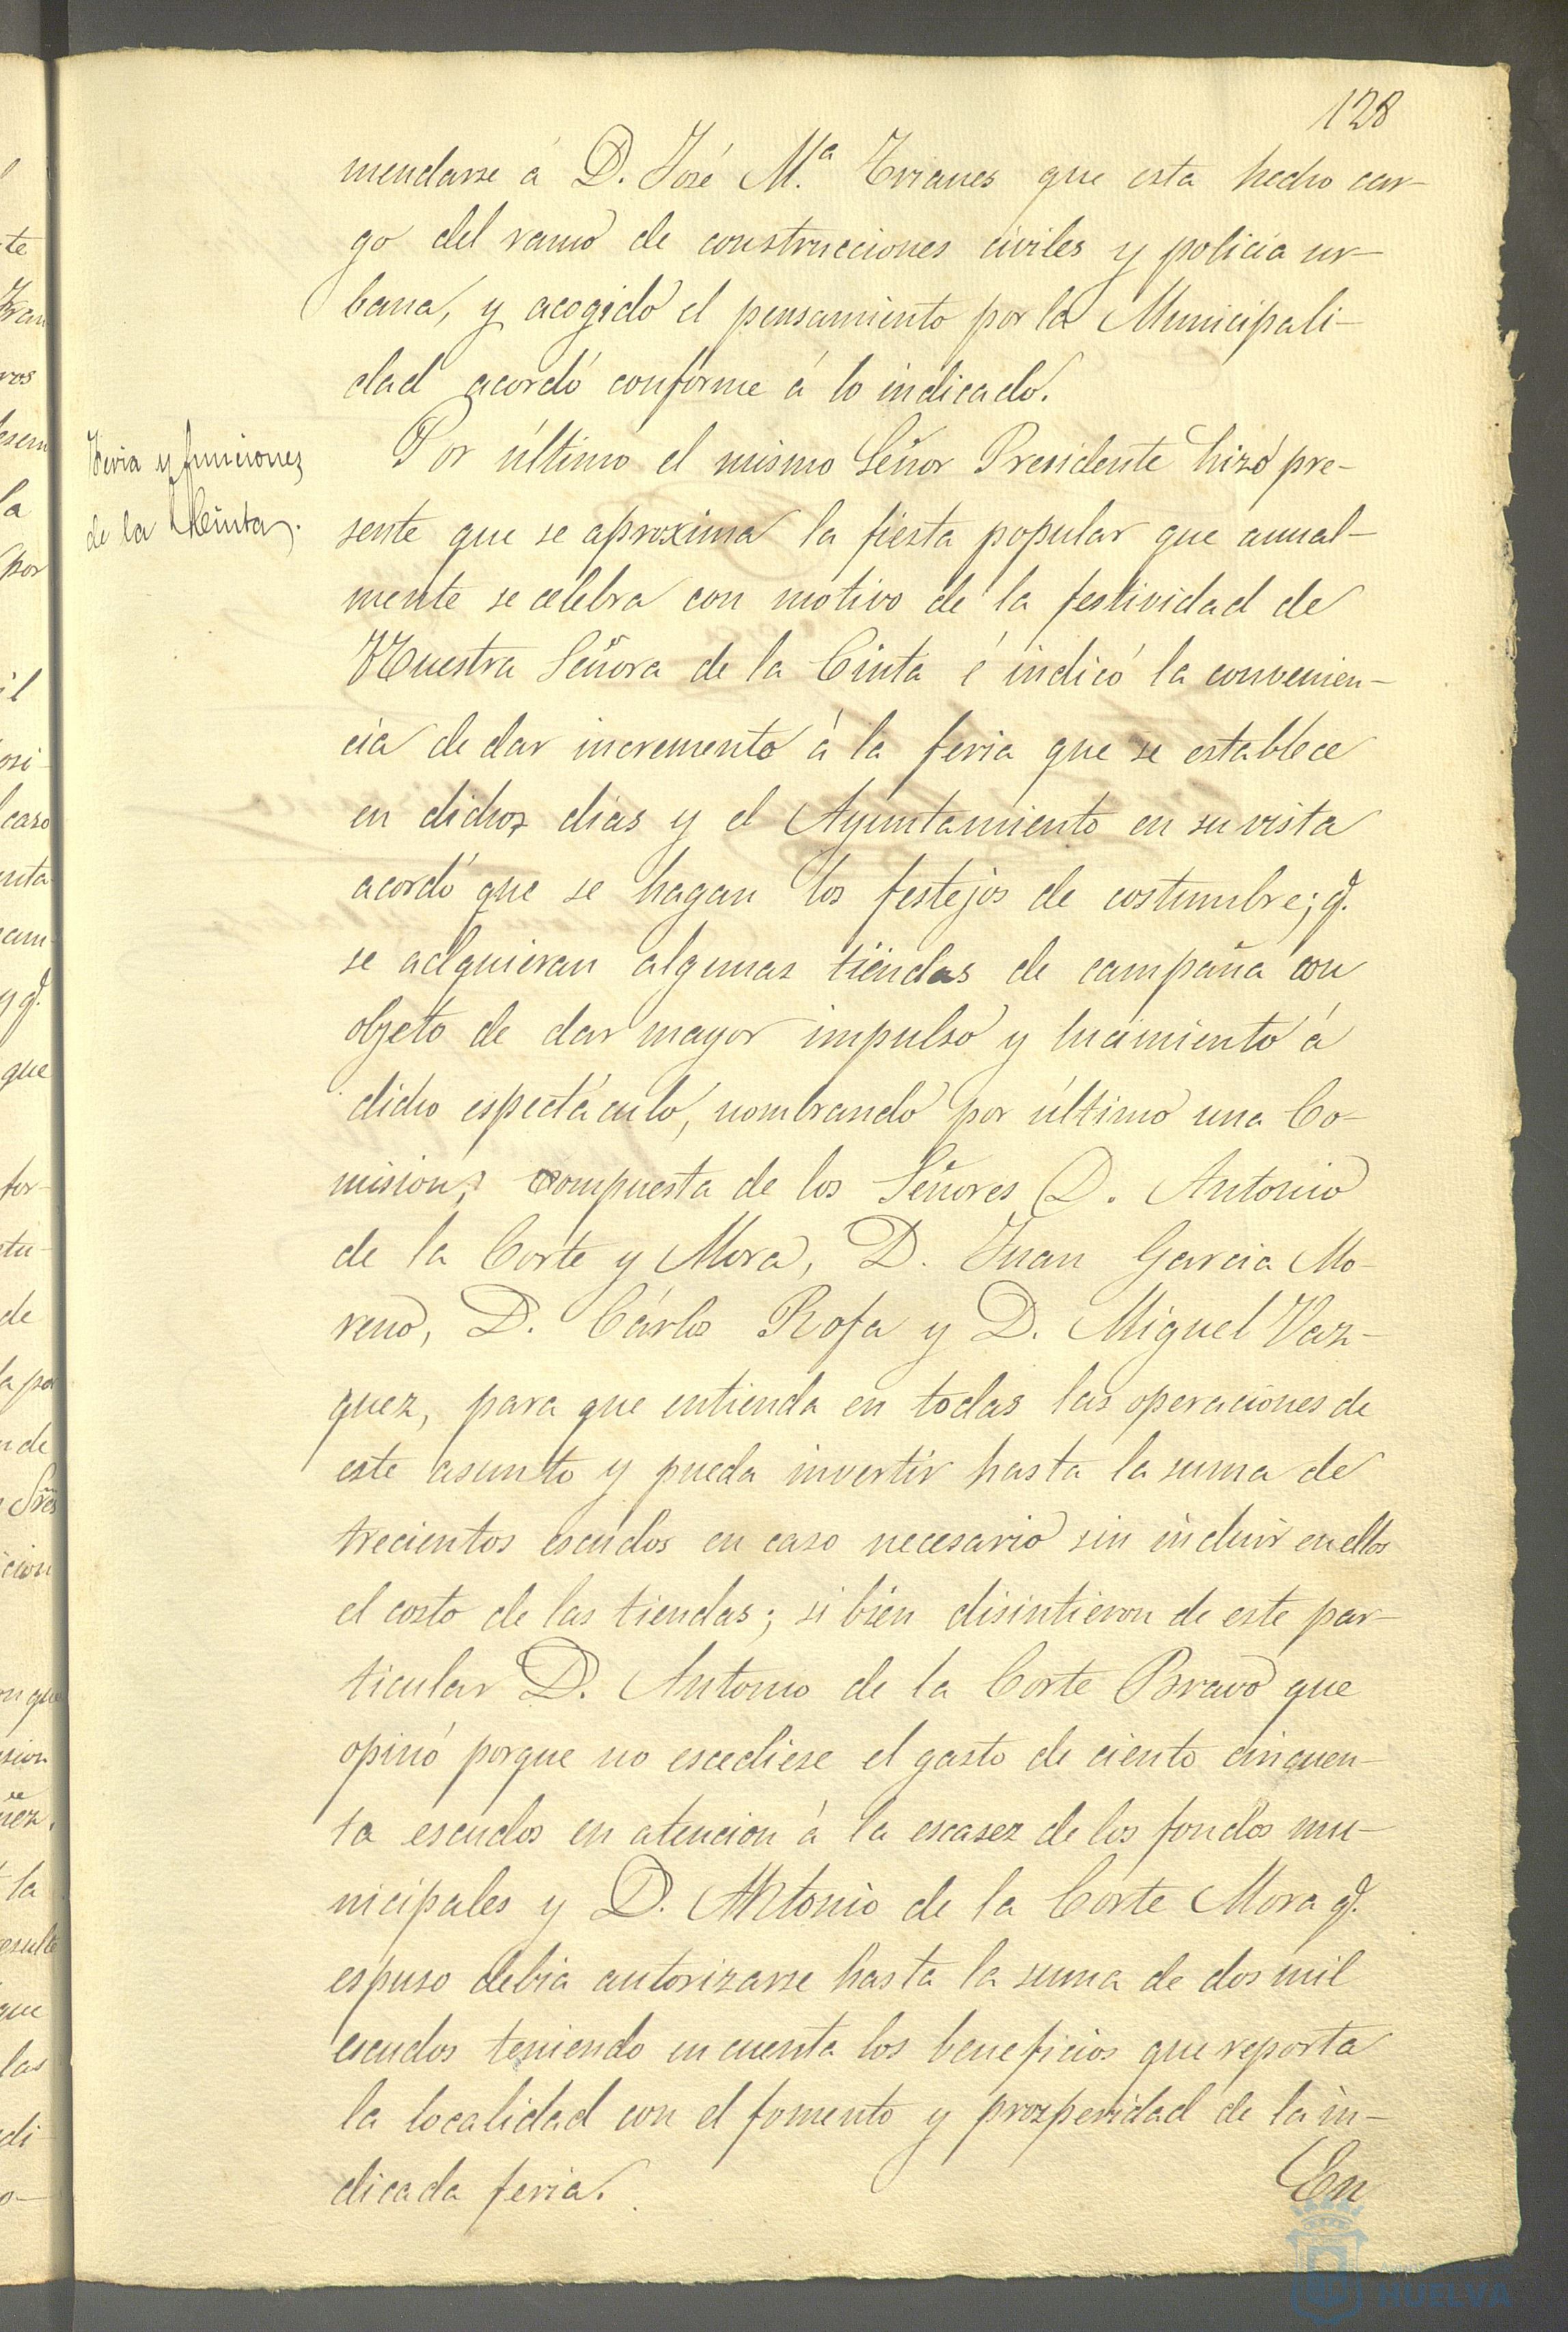 128
mendarse á D. José M.ª Trianes que esta hecho car-
go del ramo de construcciones civiles y policia ur-
bana, y acogido el pensamiento por la Municipali-
dad acordó conforme á lo indicado.
Feria y funciones
de la Cinta.
Por último el mismo Señor Presidente hizo pre-
sente que se aproxima la fiesta popular que anual-
mente se celebra con motivo de la festividad de
Nuestra Señora de la Cinta é indicó la convenien-
cia de dar incremento á la feria que se establece
en dichos dias y el Ayuntamiento en su vista
acordó que se hagan los festejos de costumbre; q.
se adquieran algunas tiendas de campaña con
objeto de dar mayor impulso y lucimiento á
dicho espectáculo, nombrando por último una Co-
mision, compuesta de los Señores D. Antonio
de la Corte y Mora, D. Juan Garcia Mo-
reno, D. Cárlos Rofa y D. Miguel Vaz-
quez, para que entienda en todas las operaciones de
este asunto y pueda invertir hasta la suma de
trecientos escudos en caso necesario sin incluir en ellos
el costo de las tiendas; si bien disintieron de este par-
ticular D. Antonio de la Corte Bravo que
opinó porque no escediese el gasto de ciento cinquen-
ta escudos en atencion á la escasez de los fondos mu-
nicipales y D. Antonio de la Corte Mora q.
espuso debia autorizarse hasta la suma de dos mil
escudos teniendo en cuenta los beneficios que reporta
la localidad con el fomento y prosperidad de la in-
dicada feria.
En
HUELVA